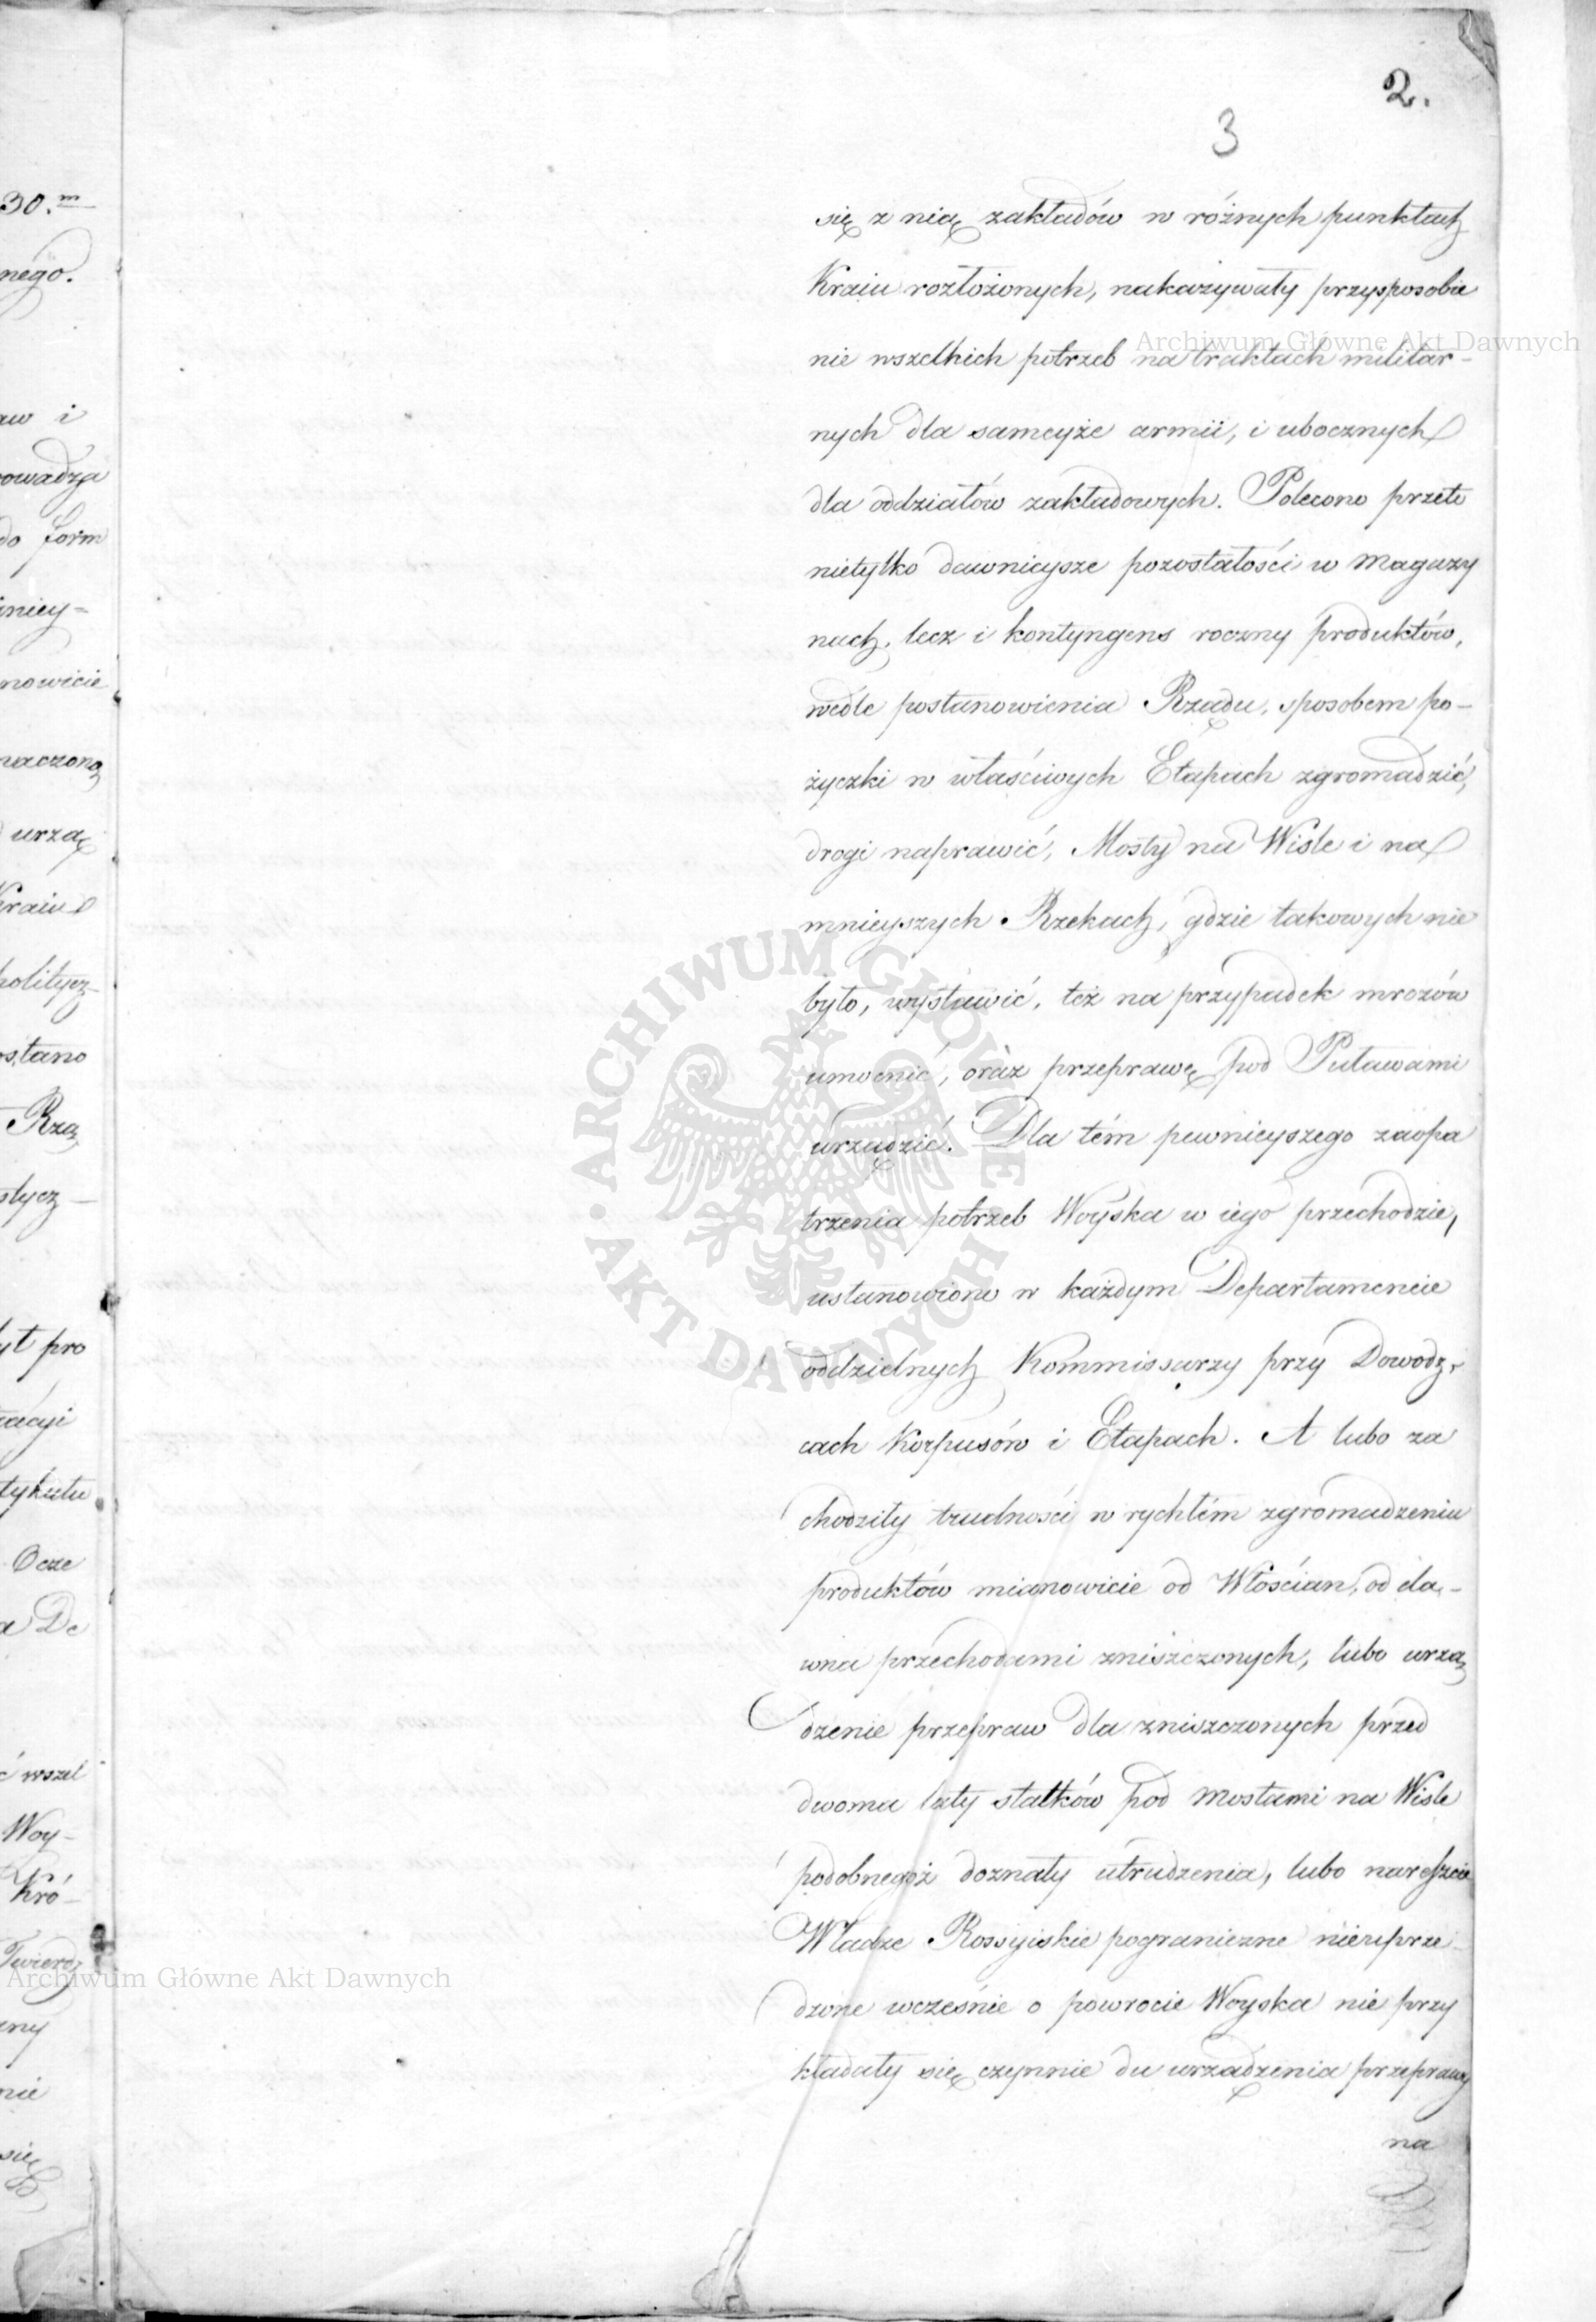 2.
3
się z nią zakładów w różnych punktach
Kraiu rozłożonych, nakazywały przysposobie
nie wszelkich potrzeb na traktach militar-
nych dla sameyże armii, i ubocznych
dla oddziałów zakładowych. Polecono przeto
nietylko dawnieysze pozostałości w magazy
nach, lecz i kontyngens roczny produktów,
wedle postanowienia Rządu, sposobem po-
życzki w właściwych Etapach zgromadzić,
drogi naprawić, Mosty na Wiśle i na
mnieyszych Rzekach, gdzie takowych nie
było, wystawić, też na przypadek mrozów
umocnić, oraz przeprawę pod Puławami
urządzić. Dla tém pewnieyszego zaopa
trzenia potrzeb Woyska w iego przechodzie,
ustanowiono w każdym Departamencie
oddzielnych Kommissarzy przy Dowodz-
cach Korpusów i Etapach. A lubo za
chodziły trudności w rychłém zgromadzeniu
produktów mianowicie od Włościan, od da-
wna przechodami zniszczonych, lubo urzą
dzenie przepraw dla zniszczonych przed
dwoma laty statków pod mostami na Wiśle
podobnegoż doznały utrudzenia, lubo nareszcie
Władze Rossyiskie pograniczne nieuprze-
dzone wcześnie o powrocie Woyska nie przy
kładały się czynnie do urządzenia przeprawy
na
30.m
nego.
aw i
rowadza
do form
niey-
nowicie
naczoną
urzą
Kraiu
polityez-
ostano
Rzą
stycz-
yt pro
racyi
tykułu
Ocze
a De
ć wszel
Woy-
Kró-
Twierdz
zny
nie
się
Archiwum Główne Akt Dawnych
ARCHIWUM GŁÓWNE · AKT DAWNYCH ·
Archiwum Główne Akt Dawnych